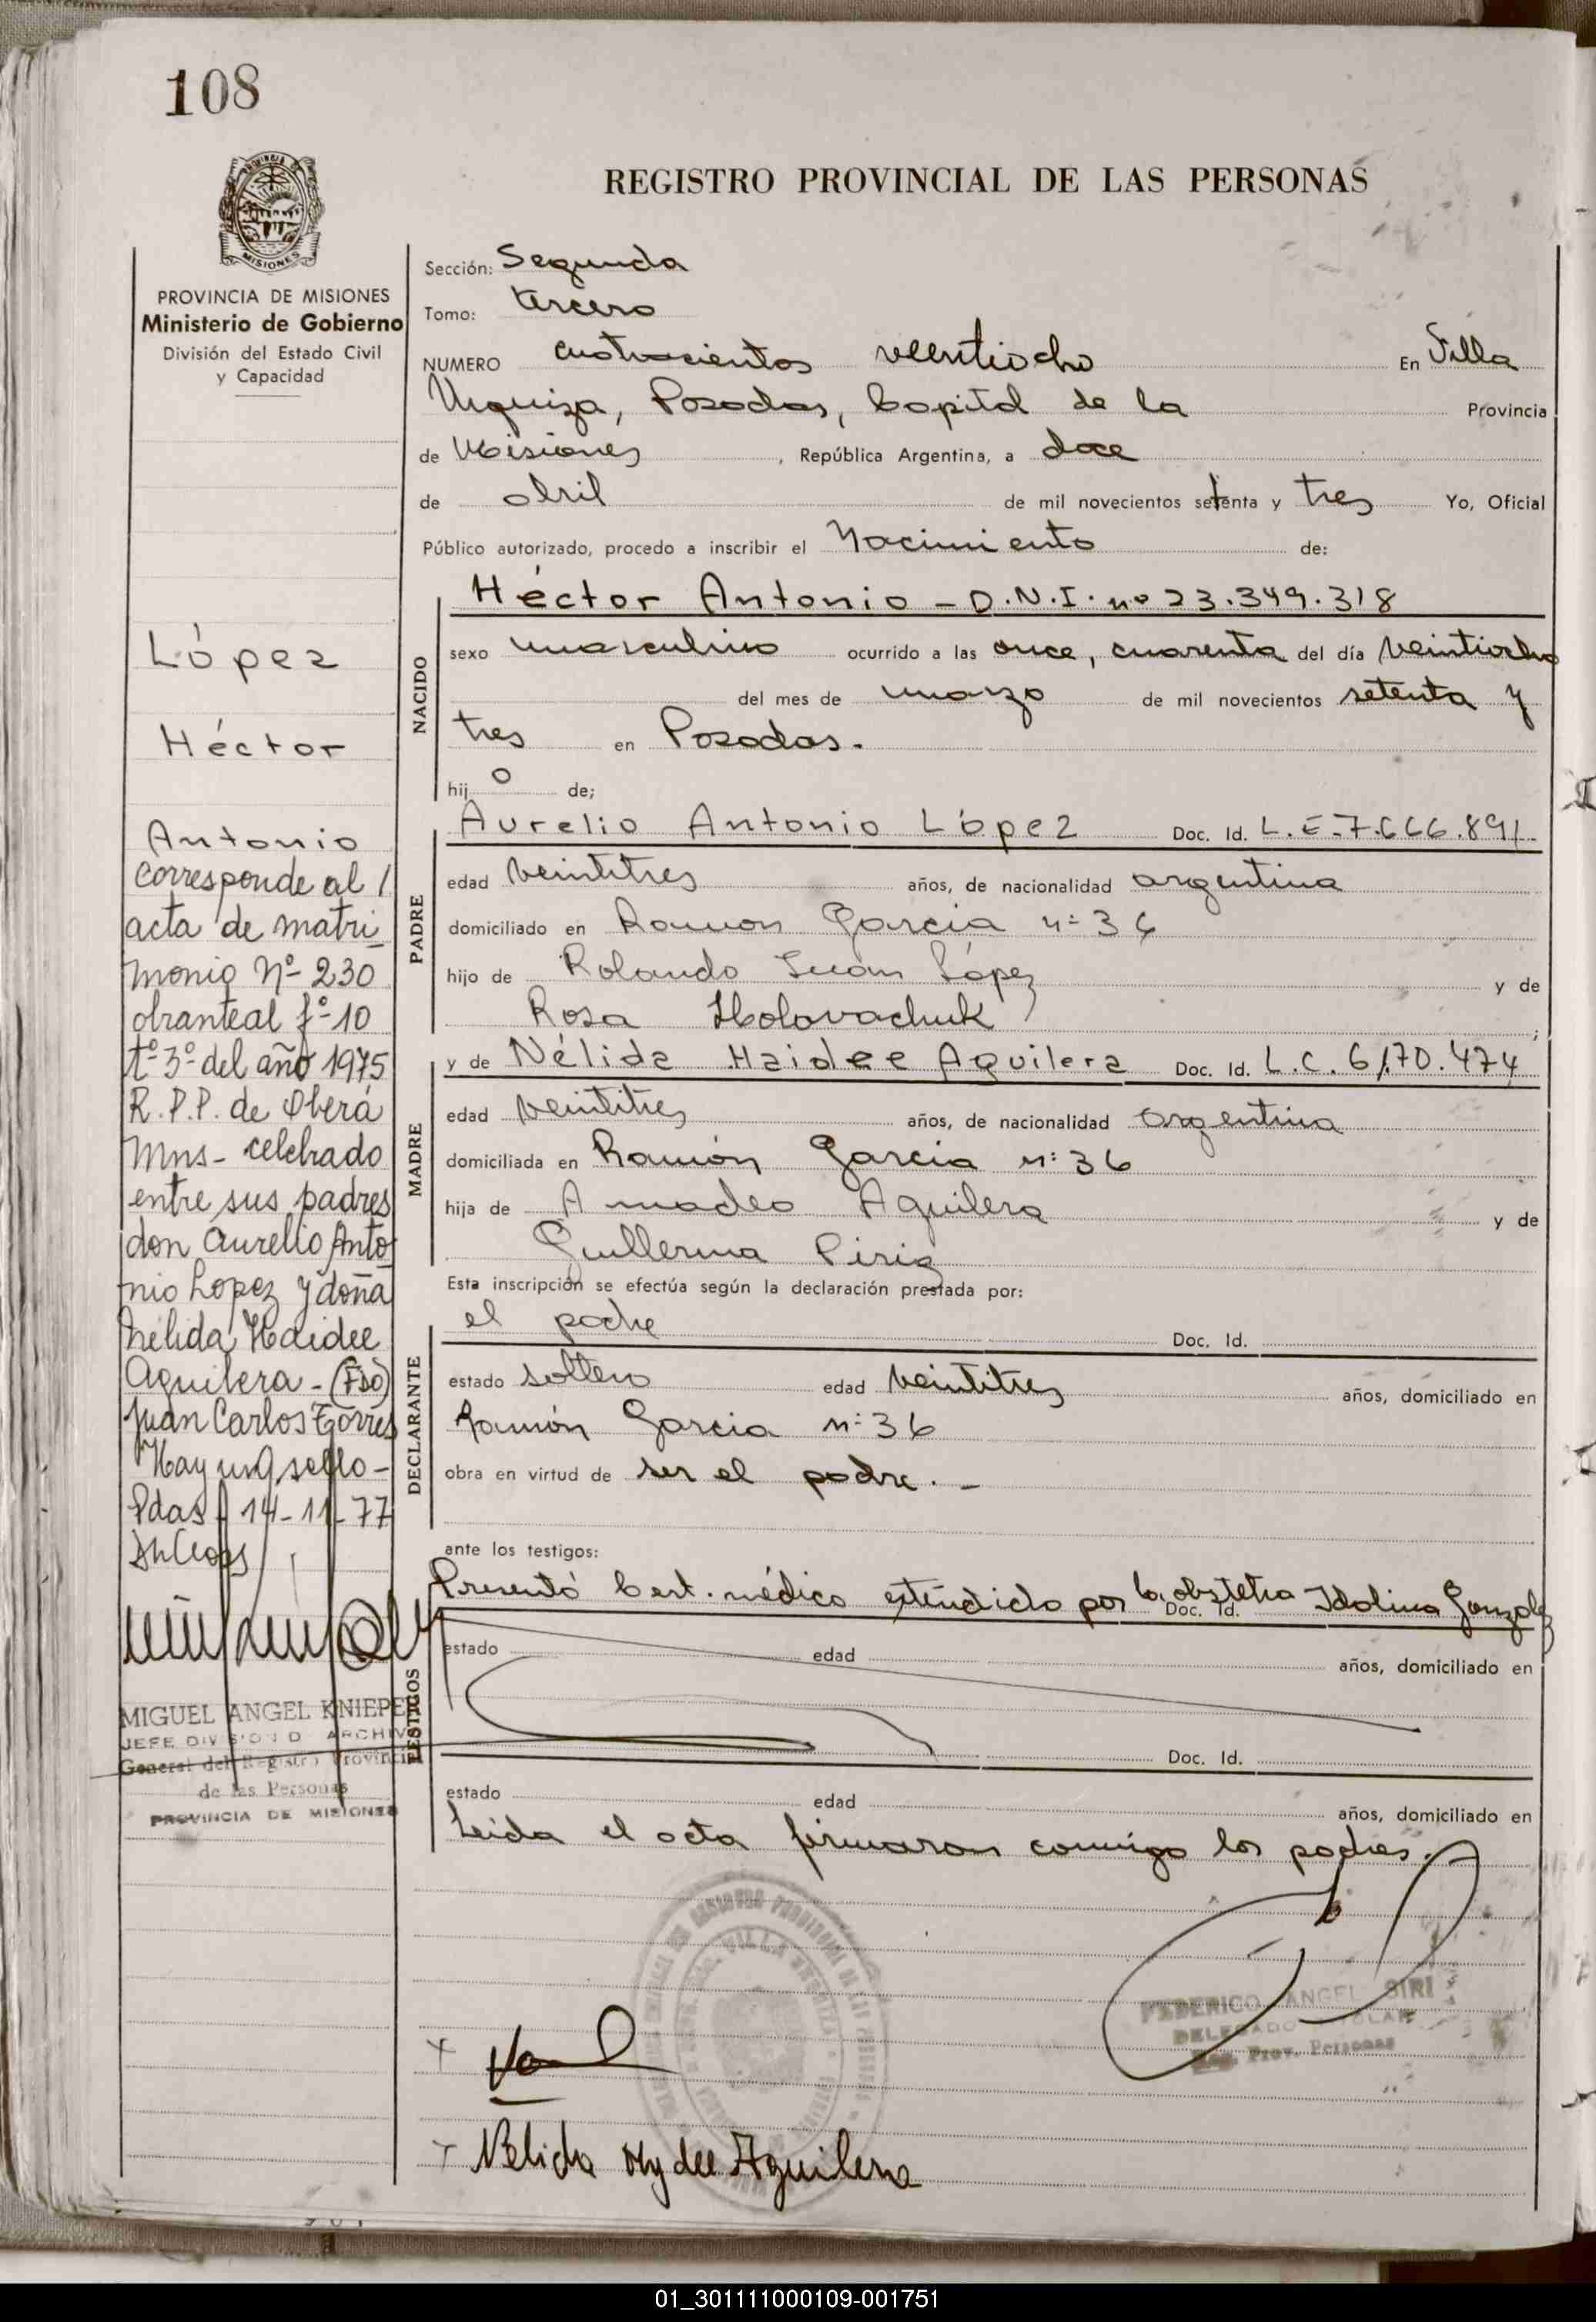 108
REGISTRO PROVINCIAL DE LAS PERSONAS
MISIONES
PROVINCIA DE MISIONES
Ministerio de Gobierno
División del Estado Civil
y Capacidad
López
Héctor
Antonio
corresponde al /
acta de matri
monio Nº 230
obrante al fº 10
tº 3º del año 1975
R.P.P. de Oberá
Mns- celebrado
entre sus padres
don Aurelio Anto
nio Lopez y doña
Nélida Haidee
Aguilera - (Fdo)
Juan Carlos Torres
Hay un sello -
Pdas 14-11-77
MIGUEL ANGEL KNIEPE
JEFE DIVISION D ARCHIV
General del Registro Provincial
de las Personas
PROVINCIA DE MISIONES
Sección: Segunda
Tomo: tercero
NUMERO cuatrocientos veintiocho En Villa
Urquiza, Posadas, Capital de la Provincia
de Misiones, República Argentina, a doce
de abril de mil novecientos setenta y tres Yo, Oficial
Público autorizado, procedo a inscribir el Nacimiento de:
NACIDO
Héctor Antonio - D.N.I. nº 23.349.318
sexo masculino ocurrido a las once, cuarenta del día veintiocho
del mes de marzo de mil novecientos setenta y
tres en Posadas.
hijo de;
PADRE
Aurelio Antonio López Doc. Id. L.E. 7.666.891
edad veintitres años, de nacionalidad argentina
domiciliado en Ramon Garcia nº 36
hijo de Rolando Juan López y de
Rosa Holovachuk ;
MADRE
y de Nélida Haidee Aguilera Doc. Id. L.C. 6.170.474
edad veintitres años, de nacionalidad argentina
domiciliada en Ramón Garcia nº 36
hija de Amadeo Aguilera y de
Guillerma Piriz
Esta inscripción se efectúa según la declaración prestada por:
DECLARANTE
el padre Doc. Id.
estado soltero edad veintitres años, domiciliado en
Ramón Garcia nº 36
obra en virtud de ser el padre. -
ante los testigos:
TESTIGOS
Presentó Cert. médico extendido por la obstetra Idolina Gonzalez
Doc. Id.
estado edad años, domiciliado en
Doc. Id.
estado edad años, domiciliado en
Leida el acta firmaron conmigo los padres.
VILLA URQUIZA
FEDERICO ANGEL SIRI
DELEGADO TITULAR
Reg. Prov. Personas
Nelida Hydee Aguilera
01_301111000109-001751